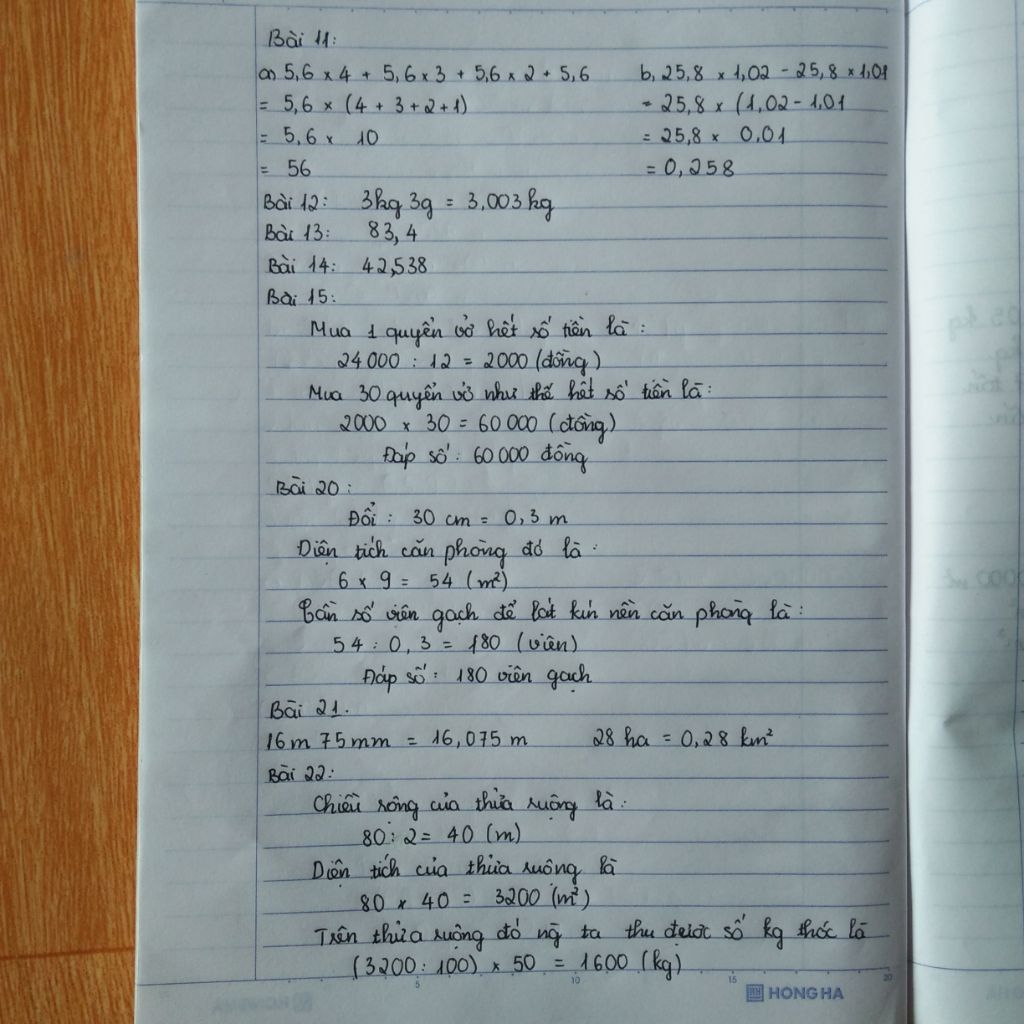 Bài 11:
a) 5,6 × 4 + 5,6 × 3 + 5,6 × 2 + 5,6
= 5,6 × (4 + 3 + 2 + 1)
= 5,6 × 10
= 56
b, 25,8 × 1,02 - 25,8 × 1,01
= 25,8 × (1,02 - 1,01
= 25,8 × 0,01
= 0,258
Bài 12: 3kg 3g = 3,003 kg
Bài 13: 83,4
Bài 14: 42,538
Bài 15:
Mua 1 quyển vở hết số tiền là :
24 000 : 12 = 2000 (đồng)
Mua 30 quyển vở như thế hết số tiền là :
2000 × 30 = 60 000 (đồng)
Đáp số : 60 000 đồng
Bài 20 :
Đổi : 30 cm = 0,3 m
Diện tích căn phòng đó là :
6 × 9 = 54 (m²)
Cần số viên gạch để lát kín nền căn phòng là :
54 : 0,3 = 180 (viên)
Đáp số : 180 viên gạch
Bài 21.
16m 75mm = 16,075 m 28 ha = 0,28 km²
Bài 22:
Chiều rộng của thửa ruộng là :
80 : 2 = 40 (m)
Diện tích của thửa ruộng là
80 × 40 = 3200 (m²)
Trên thửa ruộng đó ng ta thu được số kg thóc là
(3200 : 100) × 50 = 1600 (kg)
5 10 15 20
HONG HA